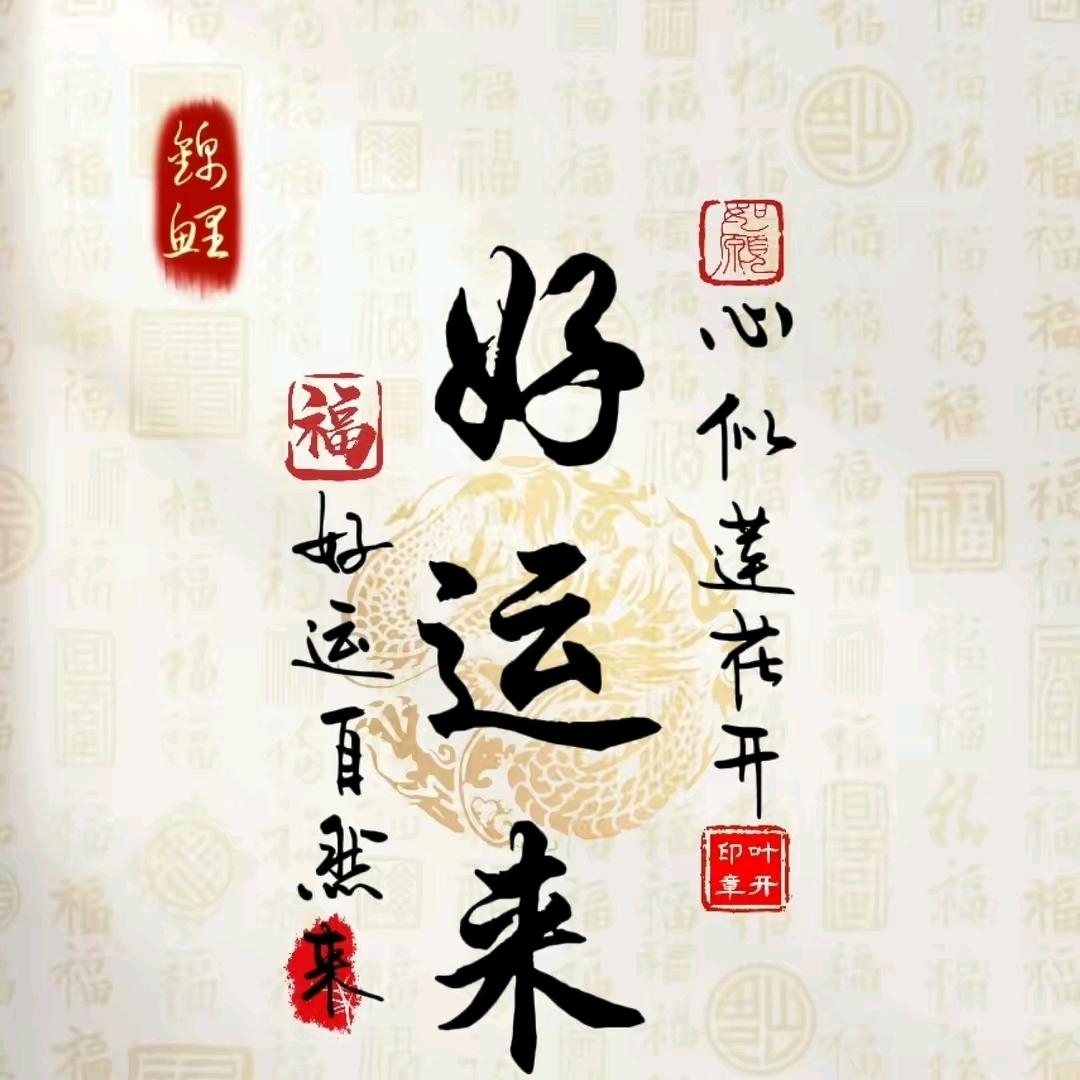 如愿
心似莲花开
叶开
印章
好运来
福
好运自然来
錦鯉